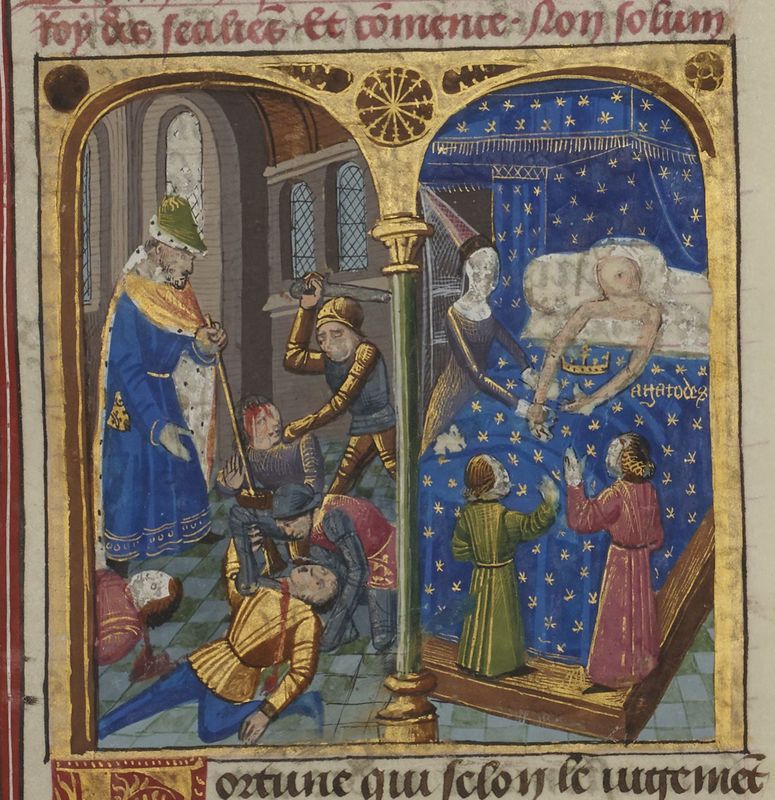 roy des seciliés Et cōmence Non solum
agatodes
ortune qui selon le iugemēt